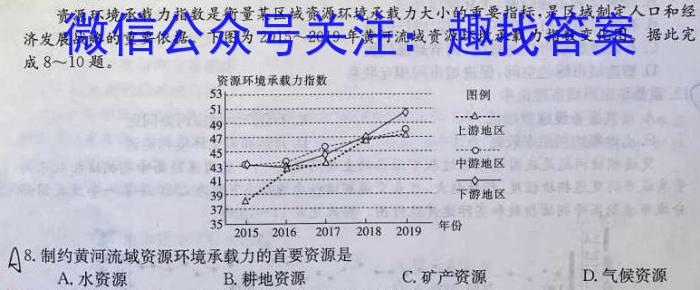 资源环境承载力指数是衡量某区域资源环境承载力大小的重要指标,是区域制定人口和经
济发展战略的重要依据。下图为2015~2019年黄河流域资源环境承载力指数变化图。据此完
微信公众号关注:趣找答案
成8~10题。
资源环境承载力指数
53
51
49
47
45
43
41
39
37
35
2015 2016 2017 2018 2019 年份
图例
上游地区
中游地区
下游地区
A 8. 制约黄河流域资源环境承载力的首要资源是
A. 水资源 B. 耕地资源 C. 矿产资源 D. 气候资源